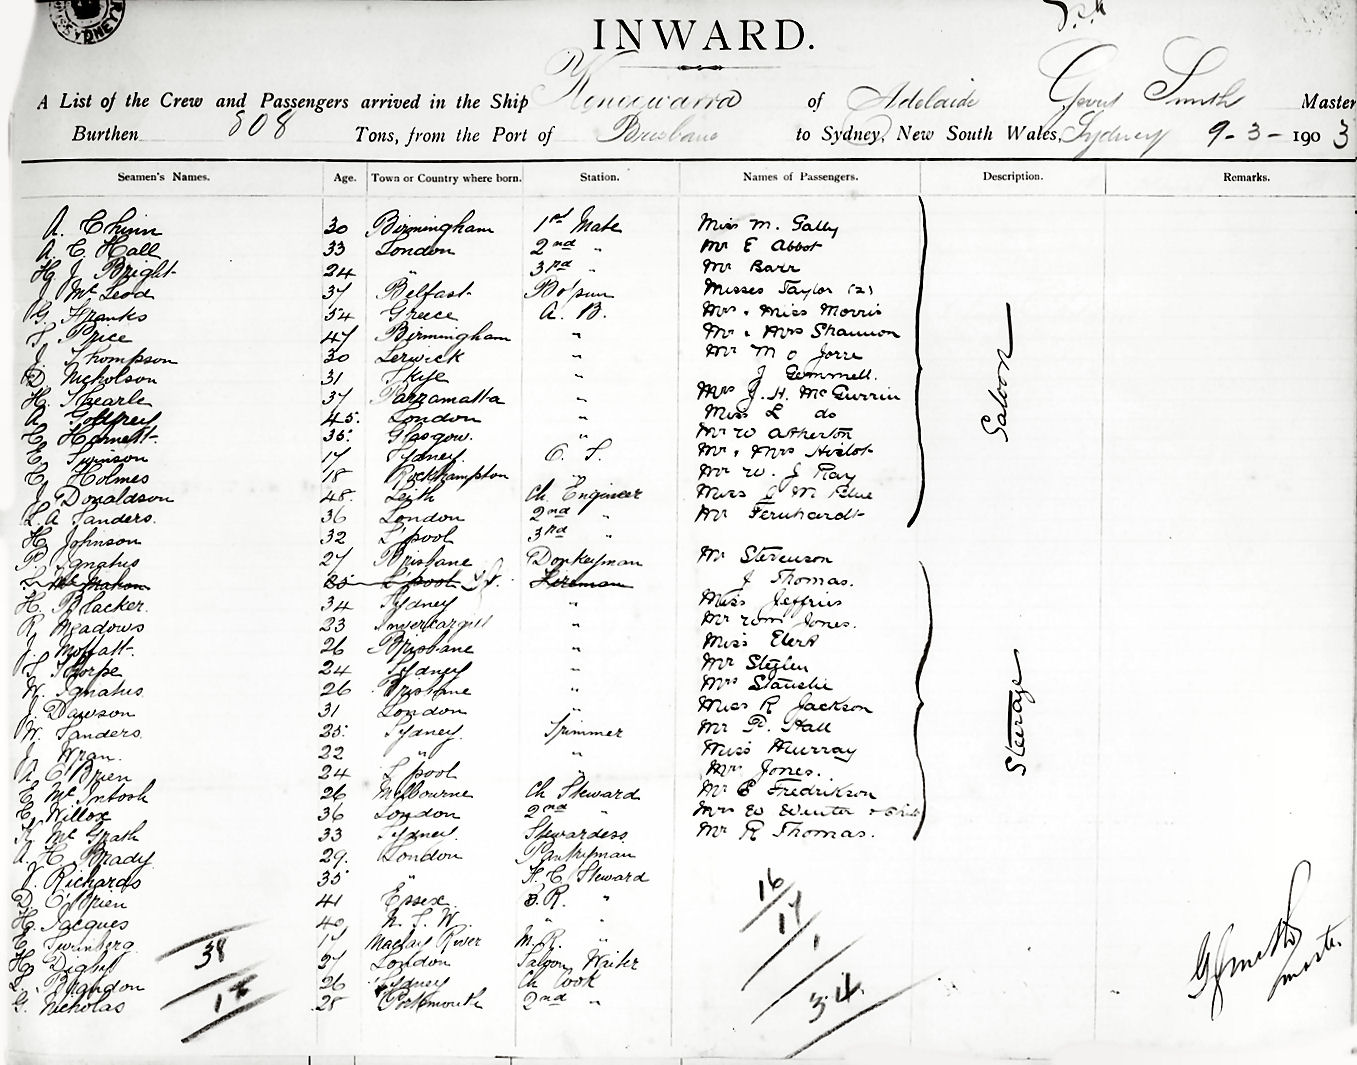 INWARD.
A List of the Crew and Passengers arrived in the Ship Konoowarra of Adelaide Smith Master
Burthen 808 Tons, from the Port of Brisbane to Sydney, New South Wales, Sydney 9-3-1903
Seamen's Names. Age. Town or Country where born. Station. Names of Passengers. Description. Remarks.
A. Chinn 30 Birmingham 1st Mate Miss M. Galby
A. C. Hall 33 London 2nd " Mr E Abbot
H J Bright 24 " 3rd " Mr Barr
J McLeod 37 Belfast Bo'sun Misses Taylor (2)
G. Franks 34 Greece A. B. Mrs & Miss Morris
Price 47 Birmingham " Mr & Mrs Shannon
J. Thompson 30 Lerwick " Mr M C Jorre
D. Nicholson 31 Skye " J Gemmell.
H. Spearle 37 Parramatta " Mrs J. H. McGurrin
A Godfrey 45. London " Miss L do
Harnett 35. Glasgow. " Mr W Atherton
Swinson 17 Sydney. O. S. Mr & Mrs
Holmes 18 Rockhampton " Mr W. J Ray
J Donaldson 48. Leith Ch. Engineer Miss M Blue
L. A Sanders. 36 London 2nd " Mr Fernhardt
H Johnson 32 L'pool 3rd "
P. Ignatius 27 Brisbane Donkeyman Mr Stevenson
McMahon 25 L'pool Fireman J Thomas.
H. Blacker. 34 Sydney " Miss Jeffries
R. Meadows 23 Invercargill " Mr Wm Jones.
J. Moffatt. 26 Brisbane " Miss Clerk
Thorpe 24 Sydney " Mr
W. Ignatius 26 Brisbane " Mrs
J Dawson 31 London " Miss R Jackson
W. Sanders. 25. Sydney. Trimmer Mr P. Hall
J. Wran. 22 " " Miss Murray
A O'Brien 24 L'pool " Mrs Jones.
McIntosh 26 Melbourne Ch Steward Mr E Fredrikson
Willox 36 London 2nd " Mrs W Winter & Child
K. McGrath 33 Sydney Stewardess Mr R Thomas.
A. H. Brady 29. London Pantryman
V. Richards 35 " F. C Steward
D. O'Brien 41 Essex B. R. "
H. Jacques 40 N. S. W. " "
Swinberg. 17 Macleay River M. R. "
H Digby 27 London Saloon Waiter
Brandon 26 Sydney Ch Cook
G. Nicholas 28 Portsmouth 2nd "
Saloon
Steerage
38
16
17
1
34.
G Smith
Master.